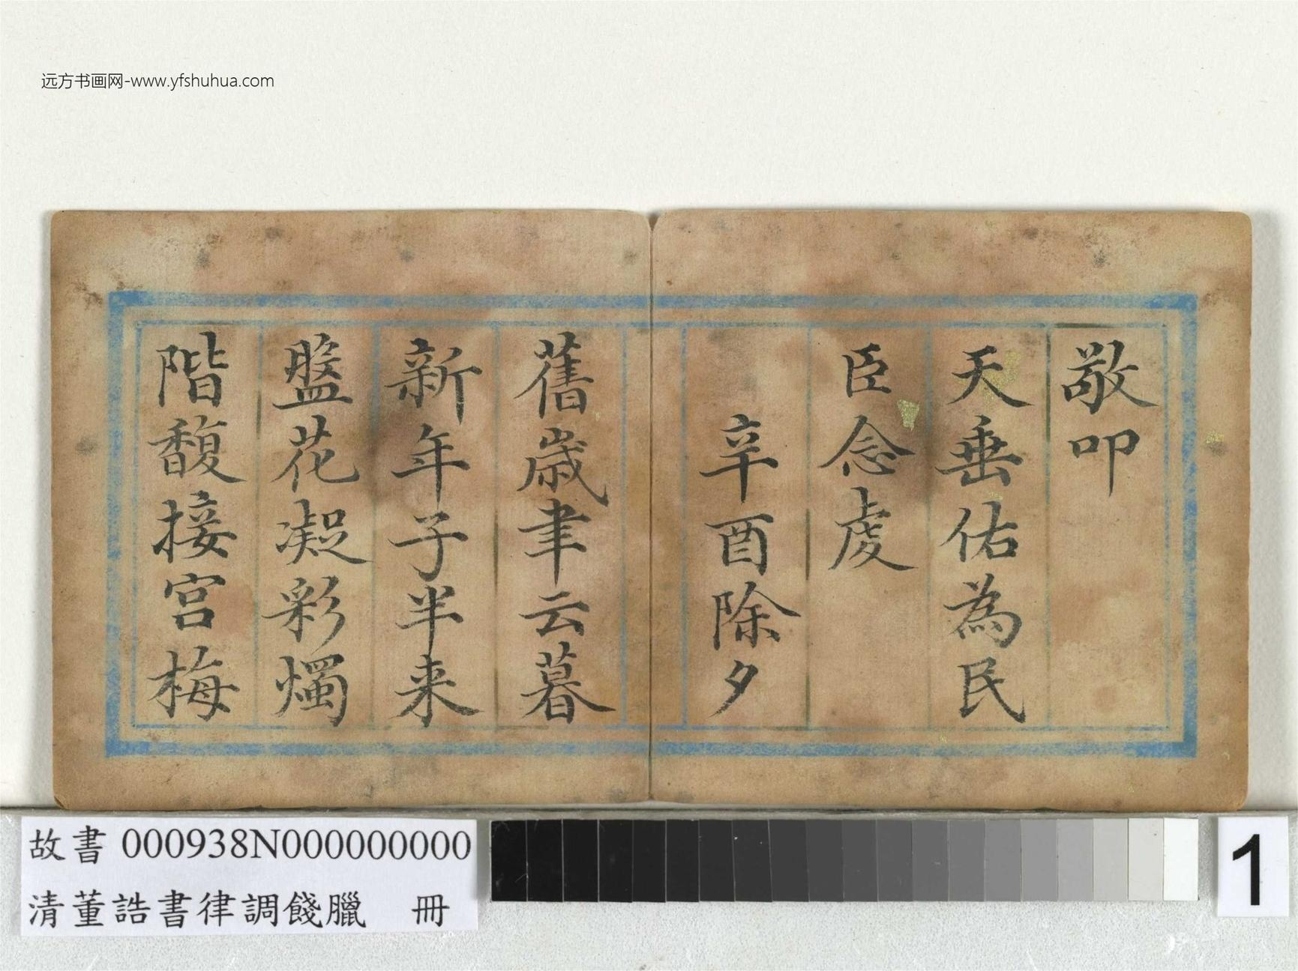 远方书画网-www.yfshuhua.com
敬叩
天垂佑為民
臣念虔
辛酉除夕
舊歲聿云暮
新年子半来
盤花凝彩燭
階馥接宫梅
故書 000938N000000000
清董誥書律調餞臘 冊
1